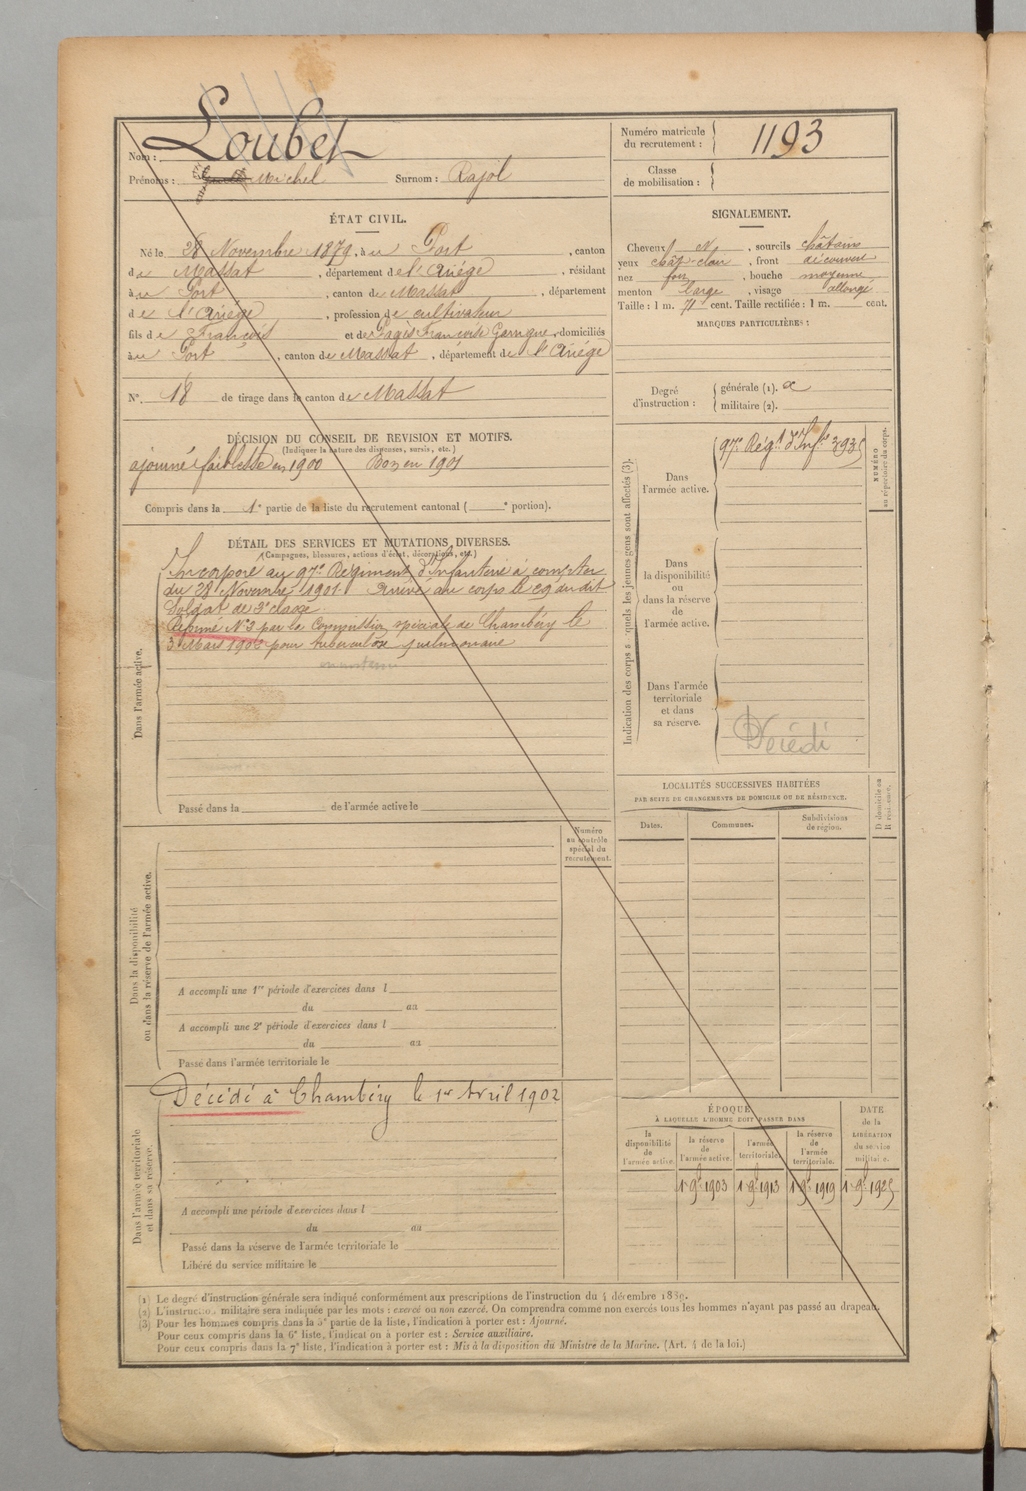 Nom : Loubet
Prénoms : Michel Surnom : Rajol
Numéro matricule
du recrutement : 1193
Classe
de mobilisation :
ÉTAT CIVIL.
Né le 28 Novembre 1879, à u Port, canton
de Massat, département de l'Ariége, résidant
à u Port, canton de Massat, département
de l'Ariége, profession de cultivateur
fils de François et de Pagès Françoise Garrigue, domiciliés
à u Port, canton de Massat, département de l'Ariége
N°. 18 de tirage dans le canton de Massat
SIGNALEMENT.
Cheveux N, sourcils châtains
yeux chât-clair, front découvert
nez fort, bouche moyenne
menton large, visage allongé
Taille : 1 m. 71 cent. Taille rectifiée : 1 m. cent.
MARQUES PARTICULIÈRES :
Degré
d'instruction :
générale (1). 2
militaire (2).
DÉCISION DU CONSEIL DE REVISION ET MOTIFS.
(Indiquer la nature des dispenses, sursis, etc.)
ajourné faiblesse en 1900 Bon en 1901
Compris dans la 1e partie de la liste du recrutement cantonal ( e portion).
DÉTAIL DES SERVICES ET MUTATIONS DIVERSES.
(Campagnes, blessures, actions d'éclat, décorations, etc.)
Dans l'armée active.
Incorporé au 97e Régiment d'Infanterie à compter
du 28 Novembre 1901. Arrivé au corps le et du dit
Soldat de 2e classe
Réformé N°2 par la Commission spéciale de Chambéry le
3 Mars 1902 pour tuberculose pulmonaire
Passé dans la de l'armée active le
Numéro
au contrôle
spécial du
recrutement.
Dans la disponibilité
ou dans la réserve de l'armée active.
A accompli une 1re période d'exercices dans l
du au
A accompli une 2e période d'exercices dans l
du au
Passé dans l'armée territoriale le
Dans l'armée territoriale
et dans sa réserve.
Décédé à Chambéry le 1er Avril 1902
A accompli une période d'exercices dans l
du au
Passé dans la réserve de l'armée territoriale le
Libéré du service militaire le
Indication des corps auxquels les jeunes gens sont affectés (3).
NUMÉRO
au répertoire du corps.
Dans
l'armée active.
97e Régt d'Infie 3935
Dans
la disponibilité
ou
dans la réserve
de
l'armée active.
Dans l'armée
territoriale
et dans
sa réserve.
Décédé
LOCALITÉS SUCCESSIVES HABITÉES
PAR SUITE DE CHANGEMENTS DE DOMICILE OU DE RÉSIDENCE.
Dates. Communes. Subdivisions
de région.
D domicile ou
R résidence.
ÉPOQUE
À LAQUELLE L'HOMME DOIT PASSER DANS
la
disponibilité
de
l'armée active.
la réserve
de
l'armée active.
l'armée
territoriale.
la réserve
de
l'armée
territoriale.
DATE
de la
LIBÉRATION
du service
militaire.
1 9bre 1903 1 9bre 1913 1 9bre 1919 1 9bre 1925
(1) Le degré d'instruction générale sera indiqué conformément aux prescriptions de l'instruction du 4 décembre 1889.
(2) L'instruction militaire sera indiquée par les mots : exercé ou non exercé. On comprendra comme non exercés tous les hommes n'ayant pas passé au drapeau.
(3) Pour les hommes compris dans la 5e partie de la liste, l'indication à porter est : Ajourné.
Pour ceux compris dans la 6e liste, l'indication à porter est : Service auxiliaire.
Pour ceux compris dans la 7e liste, l'indication à porter est : Mis à la disposition du Ministre de la Marine. (Art. 4 de la loi.)